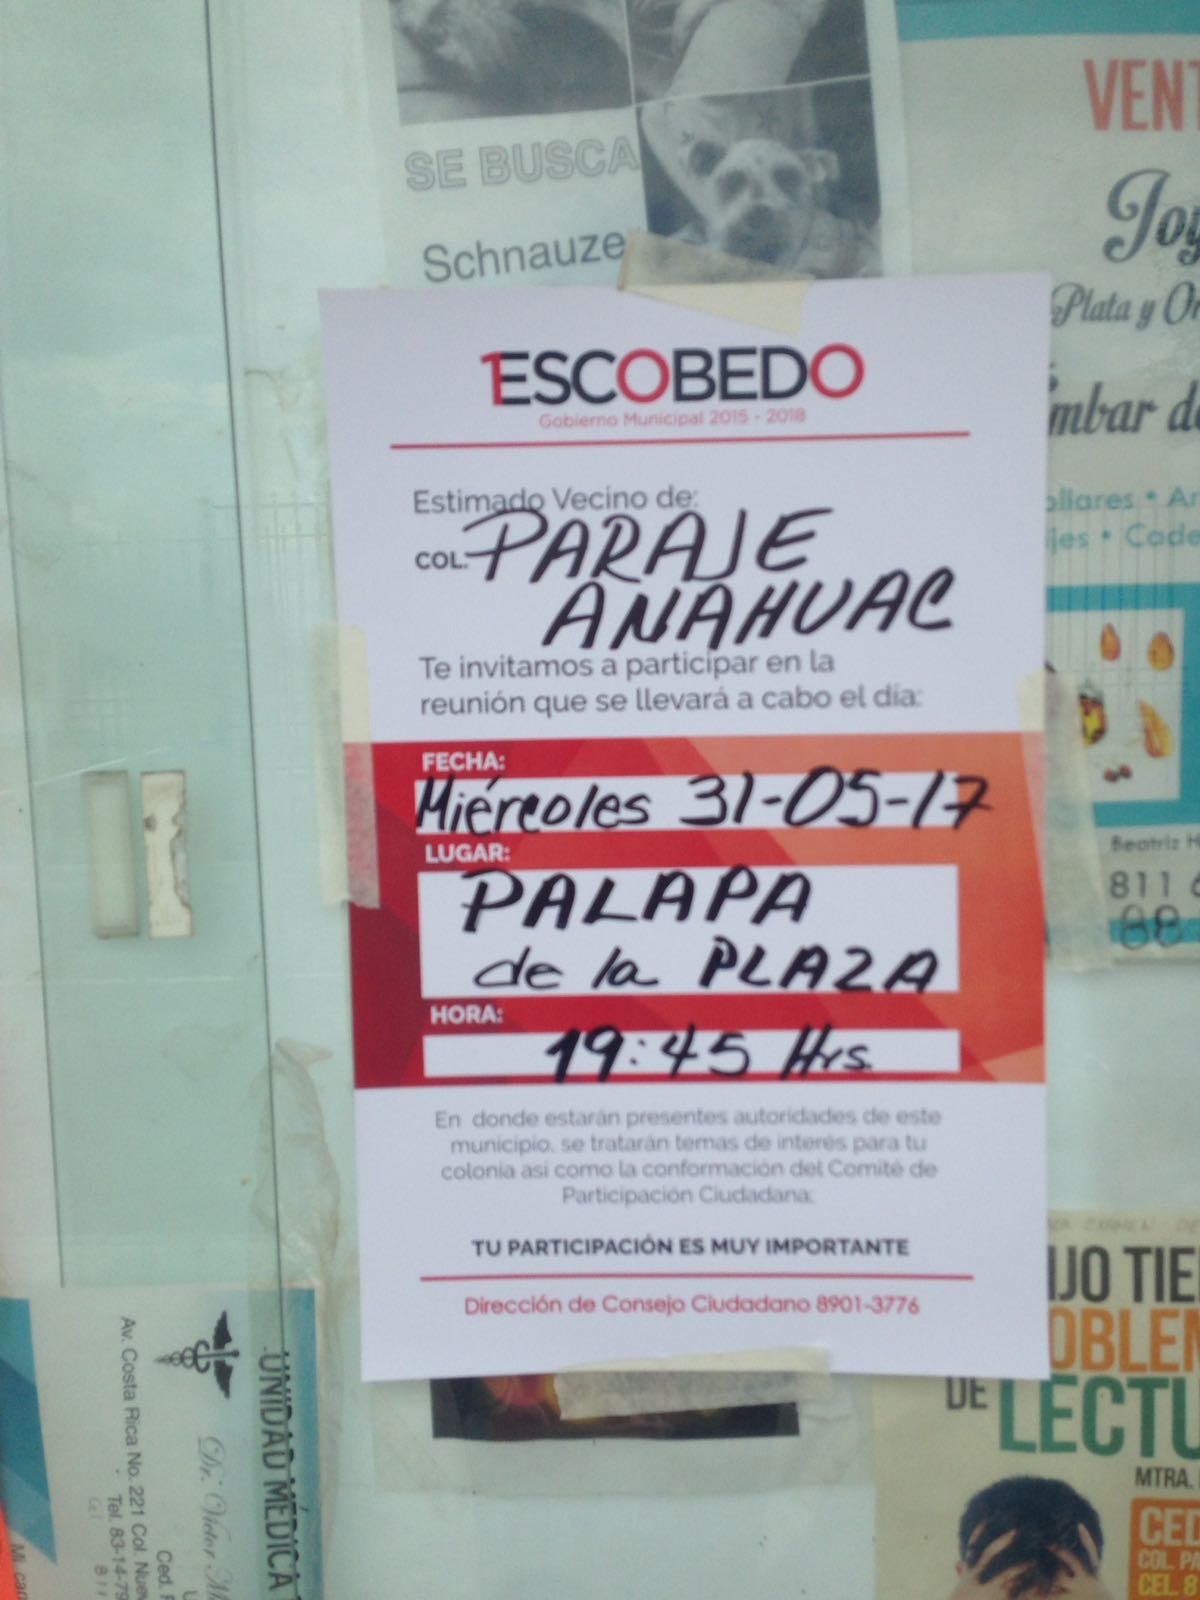 SE BUSCA
Schnauze
VENT
Joy
Plata y Or
mbar de
ollares • Ar
jes • Cade
Beatriz H
811 6
1ESCOBEDO
Gobierno Municipal 2015 - 2018
Estimado Vecino de:
COL. PARAJE
ANAHUAC
Te invitamos a participar en la
reunión que se llevará a cabo el día:
FECHA:
Miércoles 31-05-17
LUGAR:
PALAPA
de la PLAZA
HORA:
19:45 Hrs.
En donde estarán presentes autoridades de este
municipio, se tratarán temas de interés para tu
colonia asi como la conformación del Comité de
Participación Ciudadana;
TU PARTICIPACIÓN ES MUY IMPORTANTE
Dirección de Consejo Ciudadano 8901-3776
UNIDAD MÉDICA
Dr. Victor M
Av. Costa Rica No. 221 Col. Nuev
Tel. 83-14-79
Ced. P
IJO TIE
OBLEM
DE LECTU
MTRA.
CED
COL. PA
CEL. 8